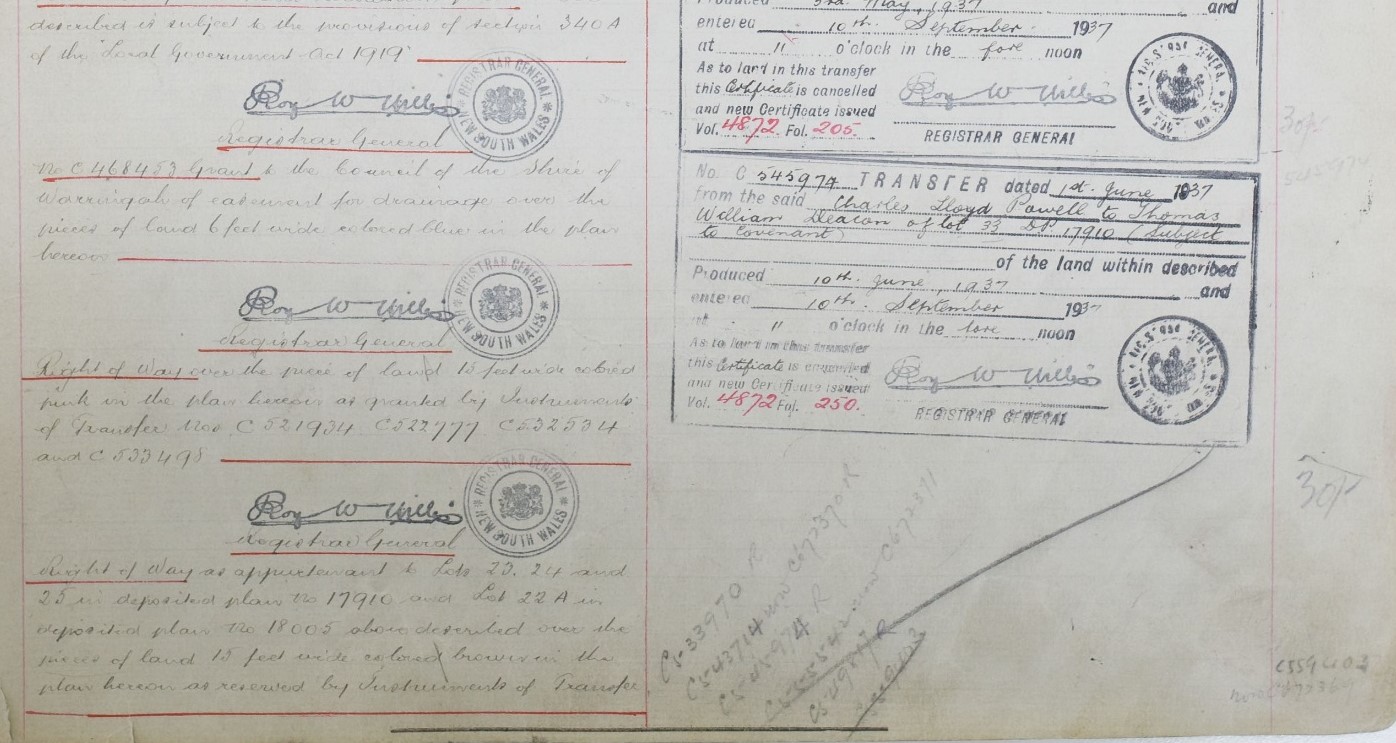 described is subject to the provisions of section 340A
of the Local Government Act 1919
Roy W Willis
Registrar General
REGISTRAR GENERAL
NEW SOUTH WALES
No C 468453 Grant to the Council of the Shire of
Warringah of easement for drainage over the
pieces of land 6 feet wide colored blue in the plan
hereon
Roy W Willis
Registrar General
REGISTRAR GENERAL
NEW SOUTH WALES
Right of Way over the piece of land 15 feet wide colored
pink in the plan hereon as granted by Instruments
of Transfer Nos C 521934 C 527777 C 532534
and C 533498
Roy W Willis
Registrar General
REGISTRAR GENERAL
NEW SOUTH WALES
Right of Way as appurtenant to Lots 23. 24 and
25 in deposited plan No 17910 and Lot 22A in
deposited plan No 18005 above described over the
pieces of land 15 feet wide colored brown in the
plan hereon as reserved by Instruments of Transfer
Produced 3rd May, 1937 and
entered 10th September 1937
at 11 o'clock in the fore noon
As to land in this transfer
this Certificate is cancelled
and new Certificate issued
Vol. 4872 Fol. 205.
Roy W Willis
REGISTRAR GENERAL
No. C 545974 TRANSFER dated 1st June 1937
from the said Charles Lloyd Powell to Thomas
William Deacon of lot 33 DP 17910 (Subject
to Covenant)
of the land within described
Produced 10th June, 1937 and
entered 10th September 1937
at 11 o'clock in the fore noon
As to land in this transfer
this Certificate is cancelled
and new Certificate issued
Vol. 4872 Fol. 250.
Roy W Willis
REGISTRAR GENERAL
C543714 now C672370 R
C545974 R
C672371
545974
C559403